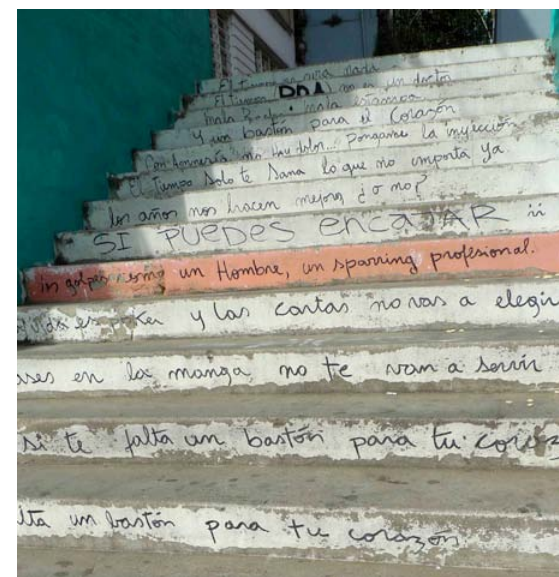 El tiempo no cura nada
El tiempo no es un doctor
mala
y un bastón para el Corazón
no hay dolor... pongame la inyección
El Tiempo solo te Sana lo que no importa ya.
los años nos hacen mejores ¿o no?
SI PUEDES ENCAJAR
golpes como un Hombre, un sparring profesional.
es poker y las cartas no vas a elegir
ases en la manga no te van a servir
si te falta un bastón para tu coraz
lta un bastón para tu corazón